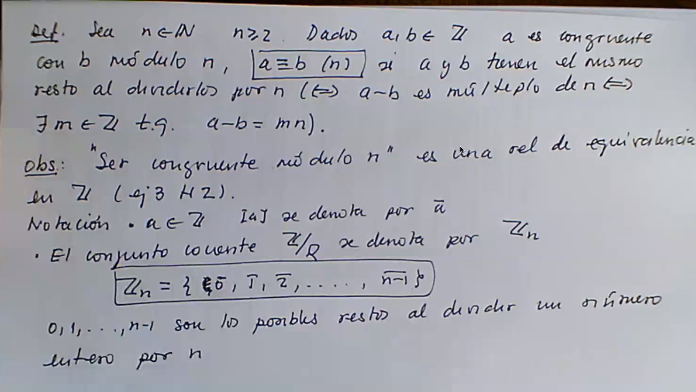 Def. Sea n ∈ ℕ n ≥ 2. Dados a, b ∈ ℤ a es congruente
con b módulo n, a ≡ b (n) si a y b tienen el mismo
resto al dividirlos por n (⟺ a-b es múltiplo de n ⟺
∃ m ∈ ℤ t.q. a-b = mn).
Obs.: "Ser congruente módulo n" es una rel de equivalencia
en ℤ (ej 3 H2).
Notación • a ∈ ℤ [a] se denota por a̅
• El conjunto cociente ℤ/R se denota por ℤn
ℤn = { 0̅, 1̅, 2̅, ....., n-1̅ }
0, 1, ..., n-1 son los posibles restos al dividir un número
entero por n